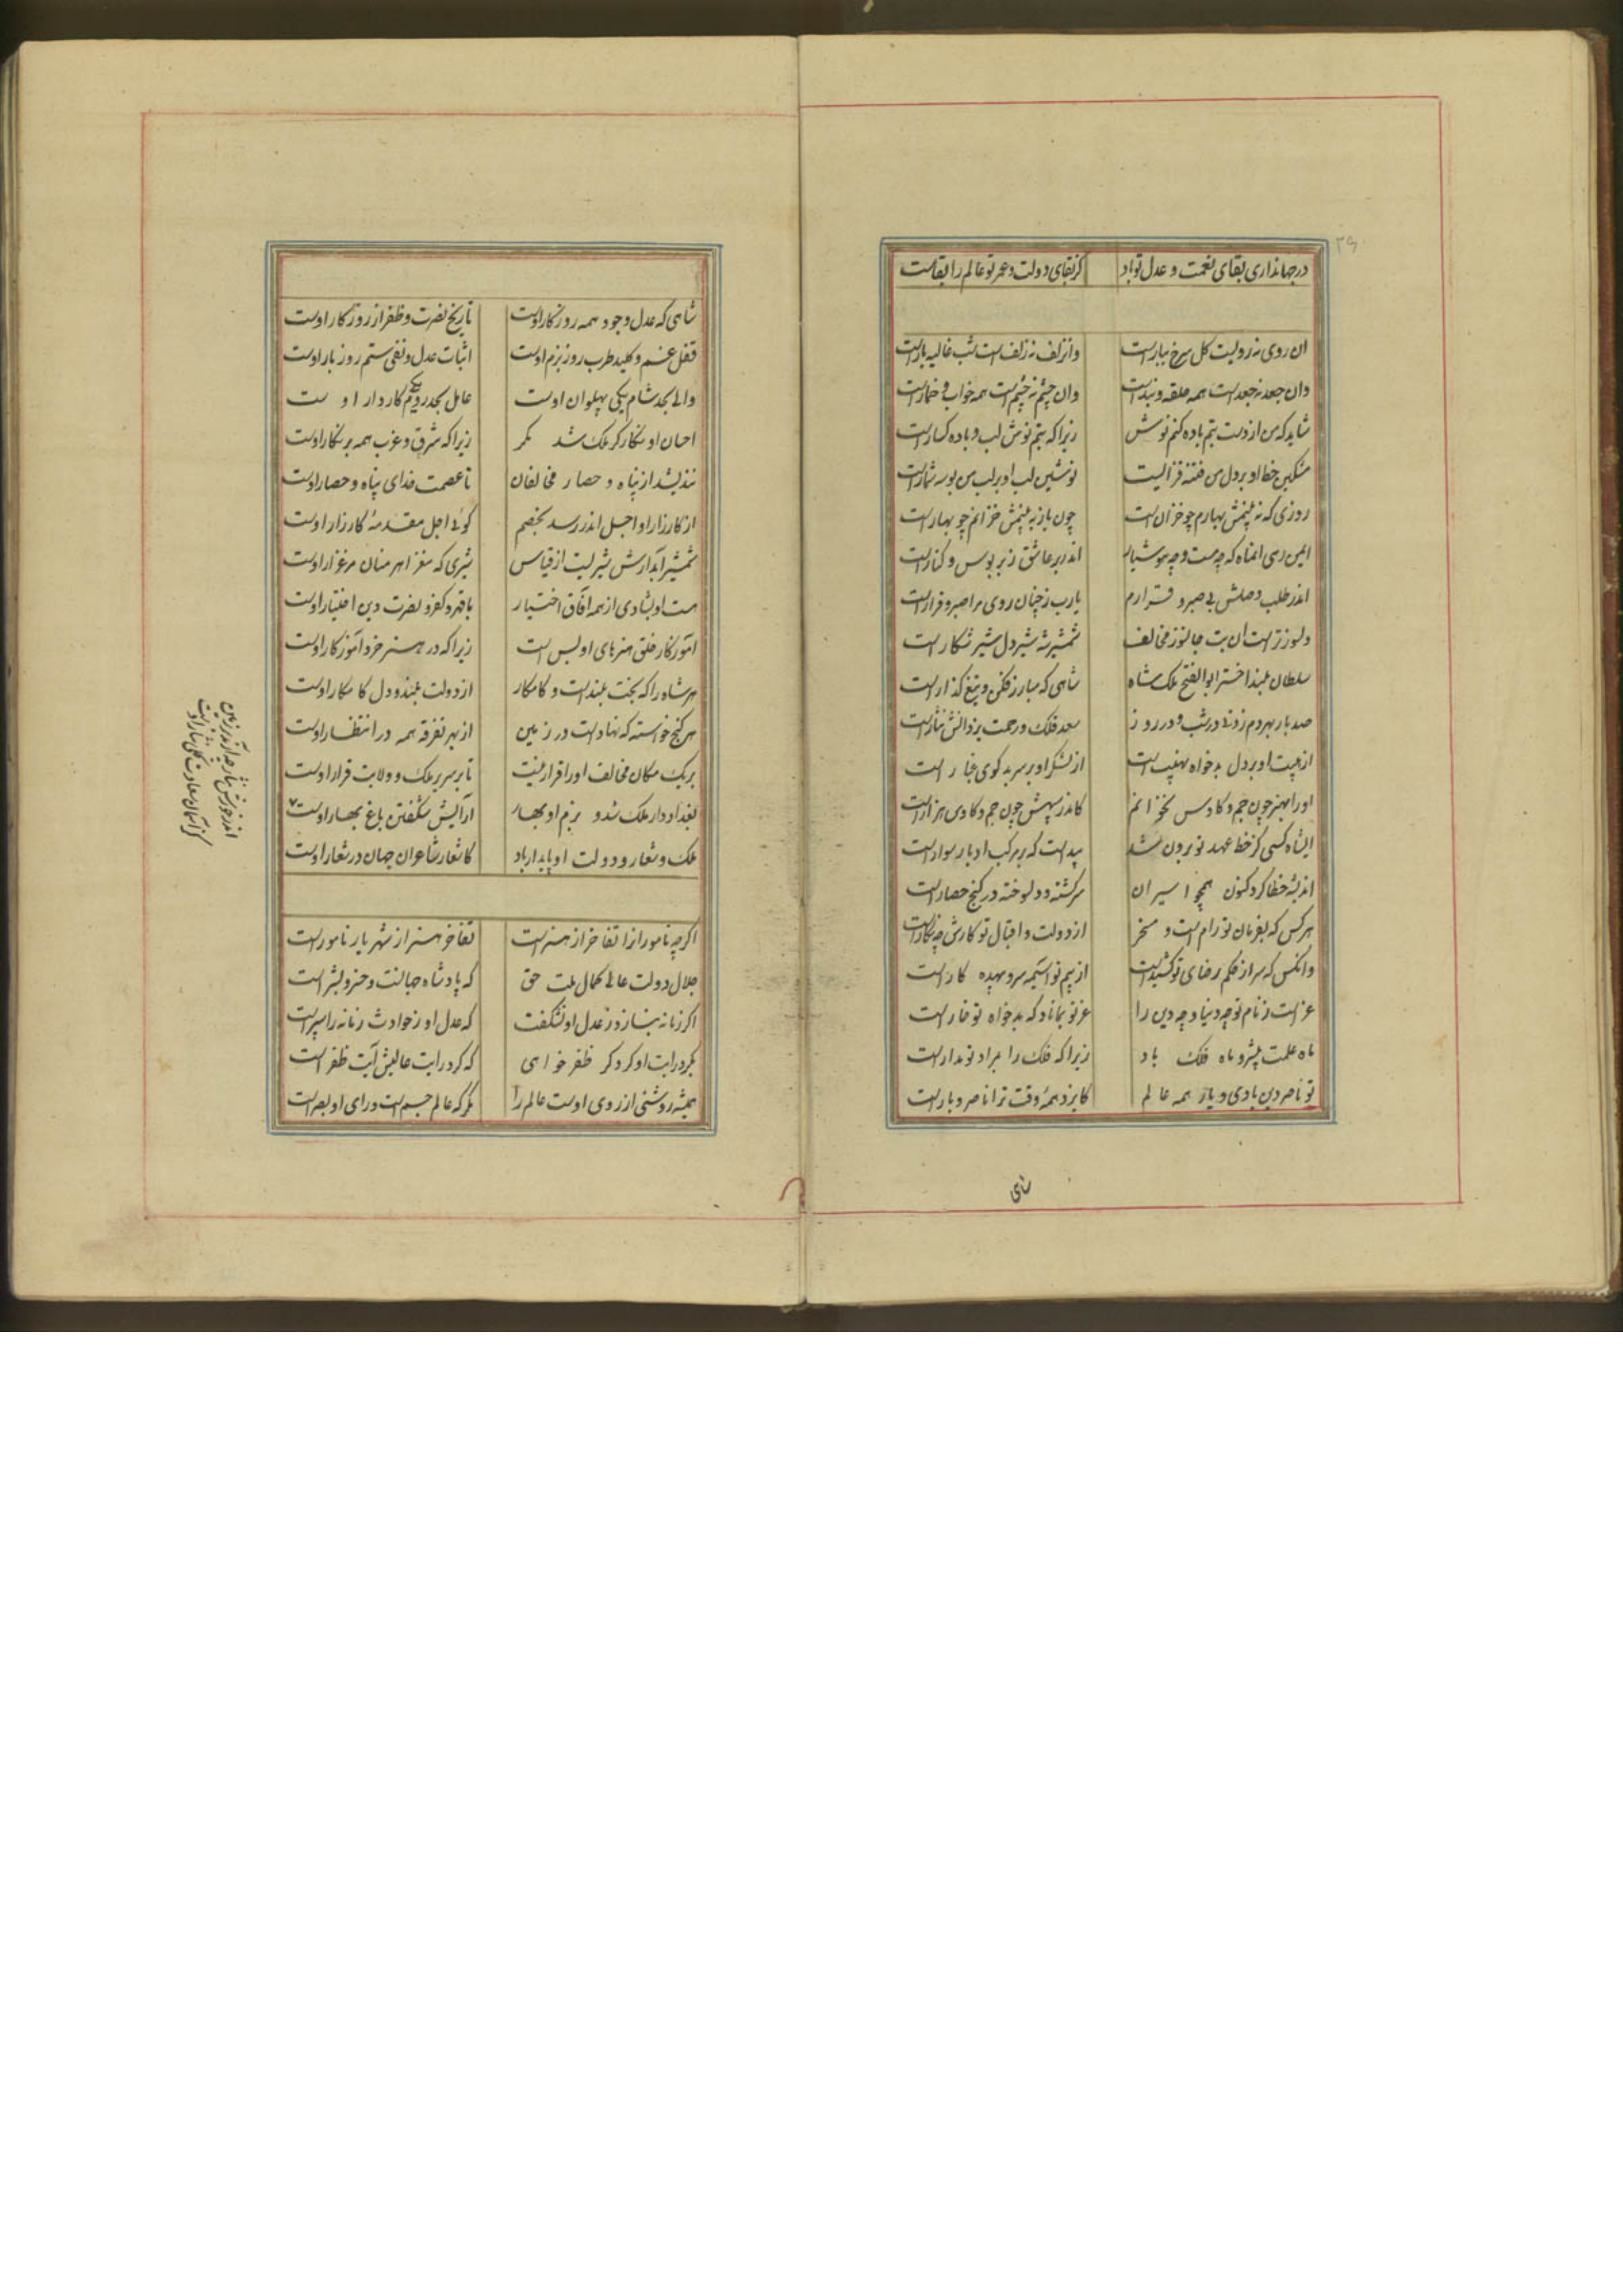 ۳۹
درجهانداری بقای نعمت و عدل تو باد کز بقای دولت و عمر تو عالم را بقاست
ان روی نه رویست کل سرخ ببارست وانزلف نه زلف است شب غالیه بارست
وان جعد نه جعد است همه حلقه و بندست وان چشم نه چشم است همه خواب و خمارست
شاید که من از دست بتم باده کنم نوش زیرا که بتم نوش لب و باده کسارست
مشکین خط او بر دل من فتنه فزایست نوشین لب او بر لب من بوسه شمارست
روزی که نه بینمش بهارم چو خزان است چون باز به بینمش خزانم چو بهارست
اندر بر عاشق ز پر بوس و کنارست
اندر طلب وصلش بی صبر و قرارم یارب ز چنان روی مرا صبر و قرارست
دلسوزترست ان بت جانسوز مخالف شمشیر شه شیردل شیر شکارست
سلطان بلند اختر ابوالفتح ملک شاه شاهی که مبارز فکن و تیغ گذارست
صد بار بهر دم زدنی در شب و در روز سعد فلک و رحمت یزدانش نثارست
از هیبت او بر دل بدخواه نهیب است از لشکر او بر سر بدکوی غبار است
اورا بهنر چون جم و کاوس نخوانم کاندر سپهش چون جم و کاوس هزارست
ایشاه کسی کز خط عهد تو برون شد پیداست که بر مرکب ادبار سوارست
اندیشه خطا کرد کنون همچو اسیران سرکشته و دلسوخته در کنج حصارست
هر کس که بفرمان تو رام است و مسخر از دولت و اقبال تو کارش چو نکارست
وانکس که سر از حکم رضای تو کشیدست از بیم تو آسیمه سر و بیهده کارست
عز است ز نام تو چه دنیا و چه دین را عز تو بماناد که بدخواه تو خوارست
ماه علمت پیشرو ماه فلک باد زیرا که فلک را بمراد تو مدارست
تو ناصر دین بادی و یار همه عالم کایزد همه وقت ترا ناصر و یارست
شاهی
شاهی که عدل وجود همه روزکار اوست تاریخ نصرت و ظفر از روزکار اوست
قفل غم و کلید طرب روز بزم اوست اثبات عدل و نفی ستم روز بار اوست
والی بحد شام یکی پهلوان اوست عامل بحد روم یکی کاردار اوست
احسان او نکارکر ملک شد مکر زیرا که شرق و غرب همه پرنکار اوست
نندیشد از پناه و حصار مخالفان تا عصمت خدای پناه و حصار اوست
از کارزار او اجل اندر رسد بخصم کوئی اجل مقدمهٔ کارزار اوست
شمشیر آبدارش شیریست از قیاس شیری که مغز اهرمنان مرغزار اوست
هست او بشادی از همه آفاق اختیار با قهر کفر و نصرت دین اختیار اوست
آموزکار خلق هنرهای او بس است زیرا که در هنر خرد آموزکار اوست
هر شاه را که بخت بلندست و کامکار از دولت بلند و دل کامکار اوست
هر کنج خواسته که نهادست در زمین از بهر تفرقه همه در انتظار اوست
بر یک مکان مخالف اورا قرار نیست تا بر سریر ملک و ولایت قرار اوست
بغداد دار ملک شد و بزم او بهار آرایش شکفتن باغ بهار اوست
ملک و شعار و دولت او پایدار باد کاشعار شاعران جهان در شعار اوست
کز آسمان سعادت کلی نثار اوست
اکرچه نامورانرا تفاخر از هنرست تفاخر هنر از شهریار نامورست
جلال دولت عالی کمال ملت حق که پادشاه جهانست و خسرو بشرست
اکر زمانه بنازد ز عدل او نشکفت که عدل او ز حوادث زمانه را سپرست
بکرد رایت او کرد کر ظفر خواهی که کرد رایت عالیش آیت ظفرست
همیشه روشنی از روی اوست عالم را مکر که عالم جسم است و رای او بصرست